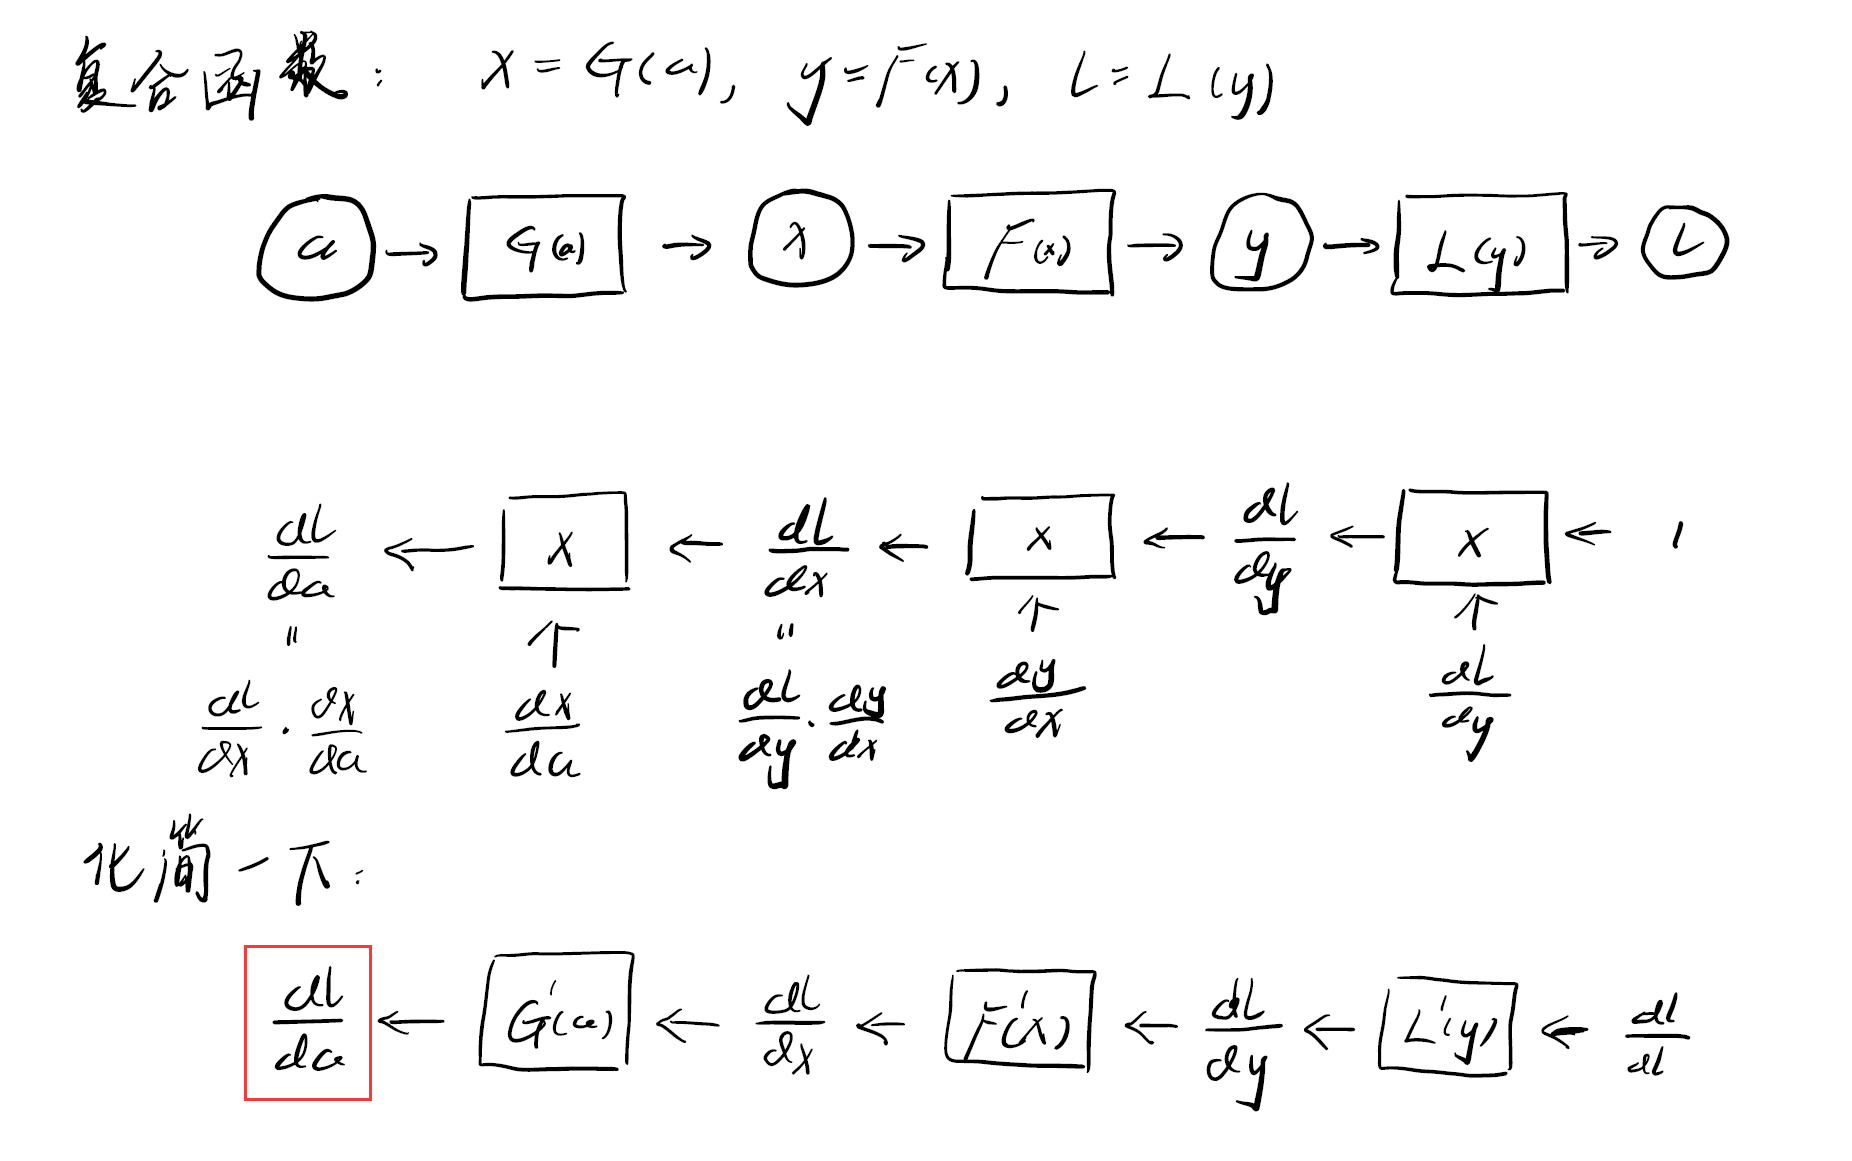 复合函数: x = G(a), y = F(x), L = L(y)
a → G(a) → x → F(x) → y → L(y) → L
dL/da ← × ← dL/dx ← × ← dL/dy ← × ← 1
" ↑ " ↑ ↑
dL/dx · dx/da dx/da dL/dy · dy/dx dy/dx dL/dy
化简一下:
dL/da ← G'(a) ← dL/dx ← F'(x) ← dL/dy ← L'(y) ← dL/dL